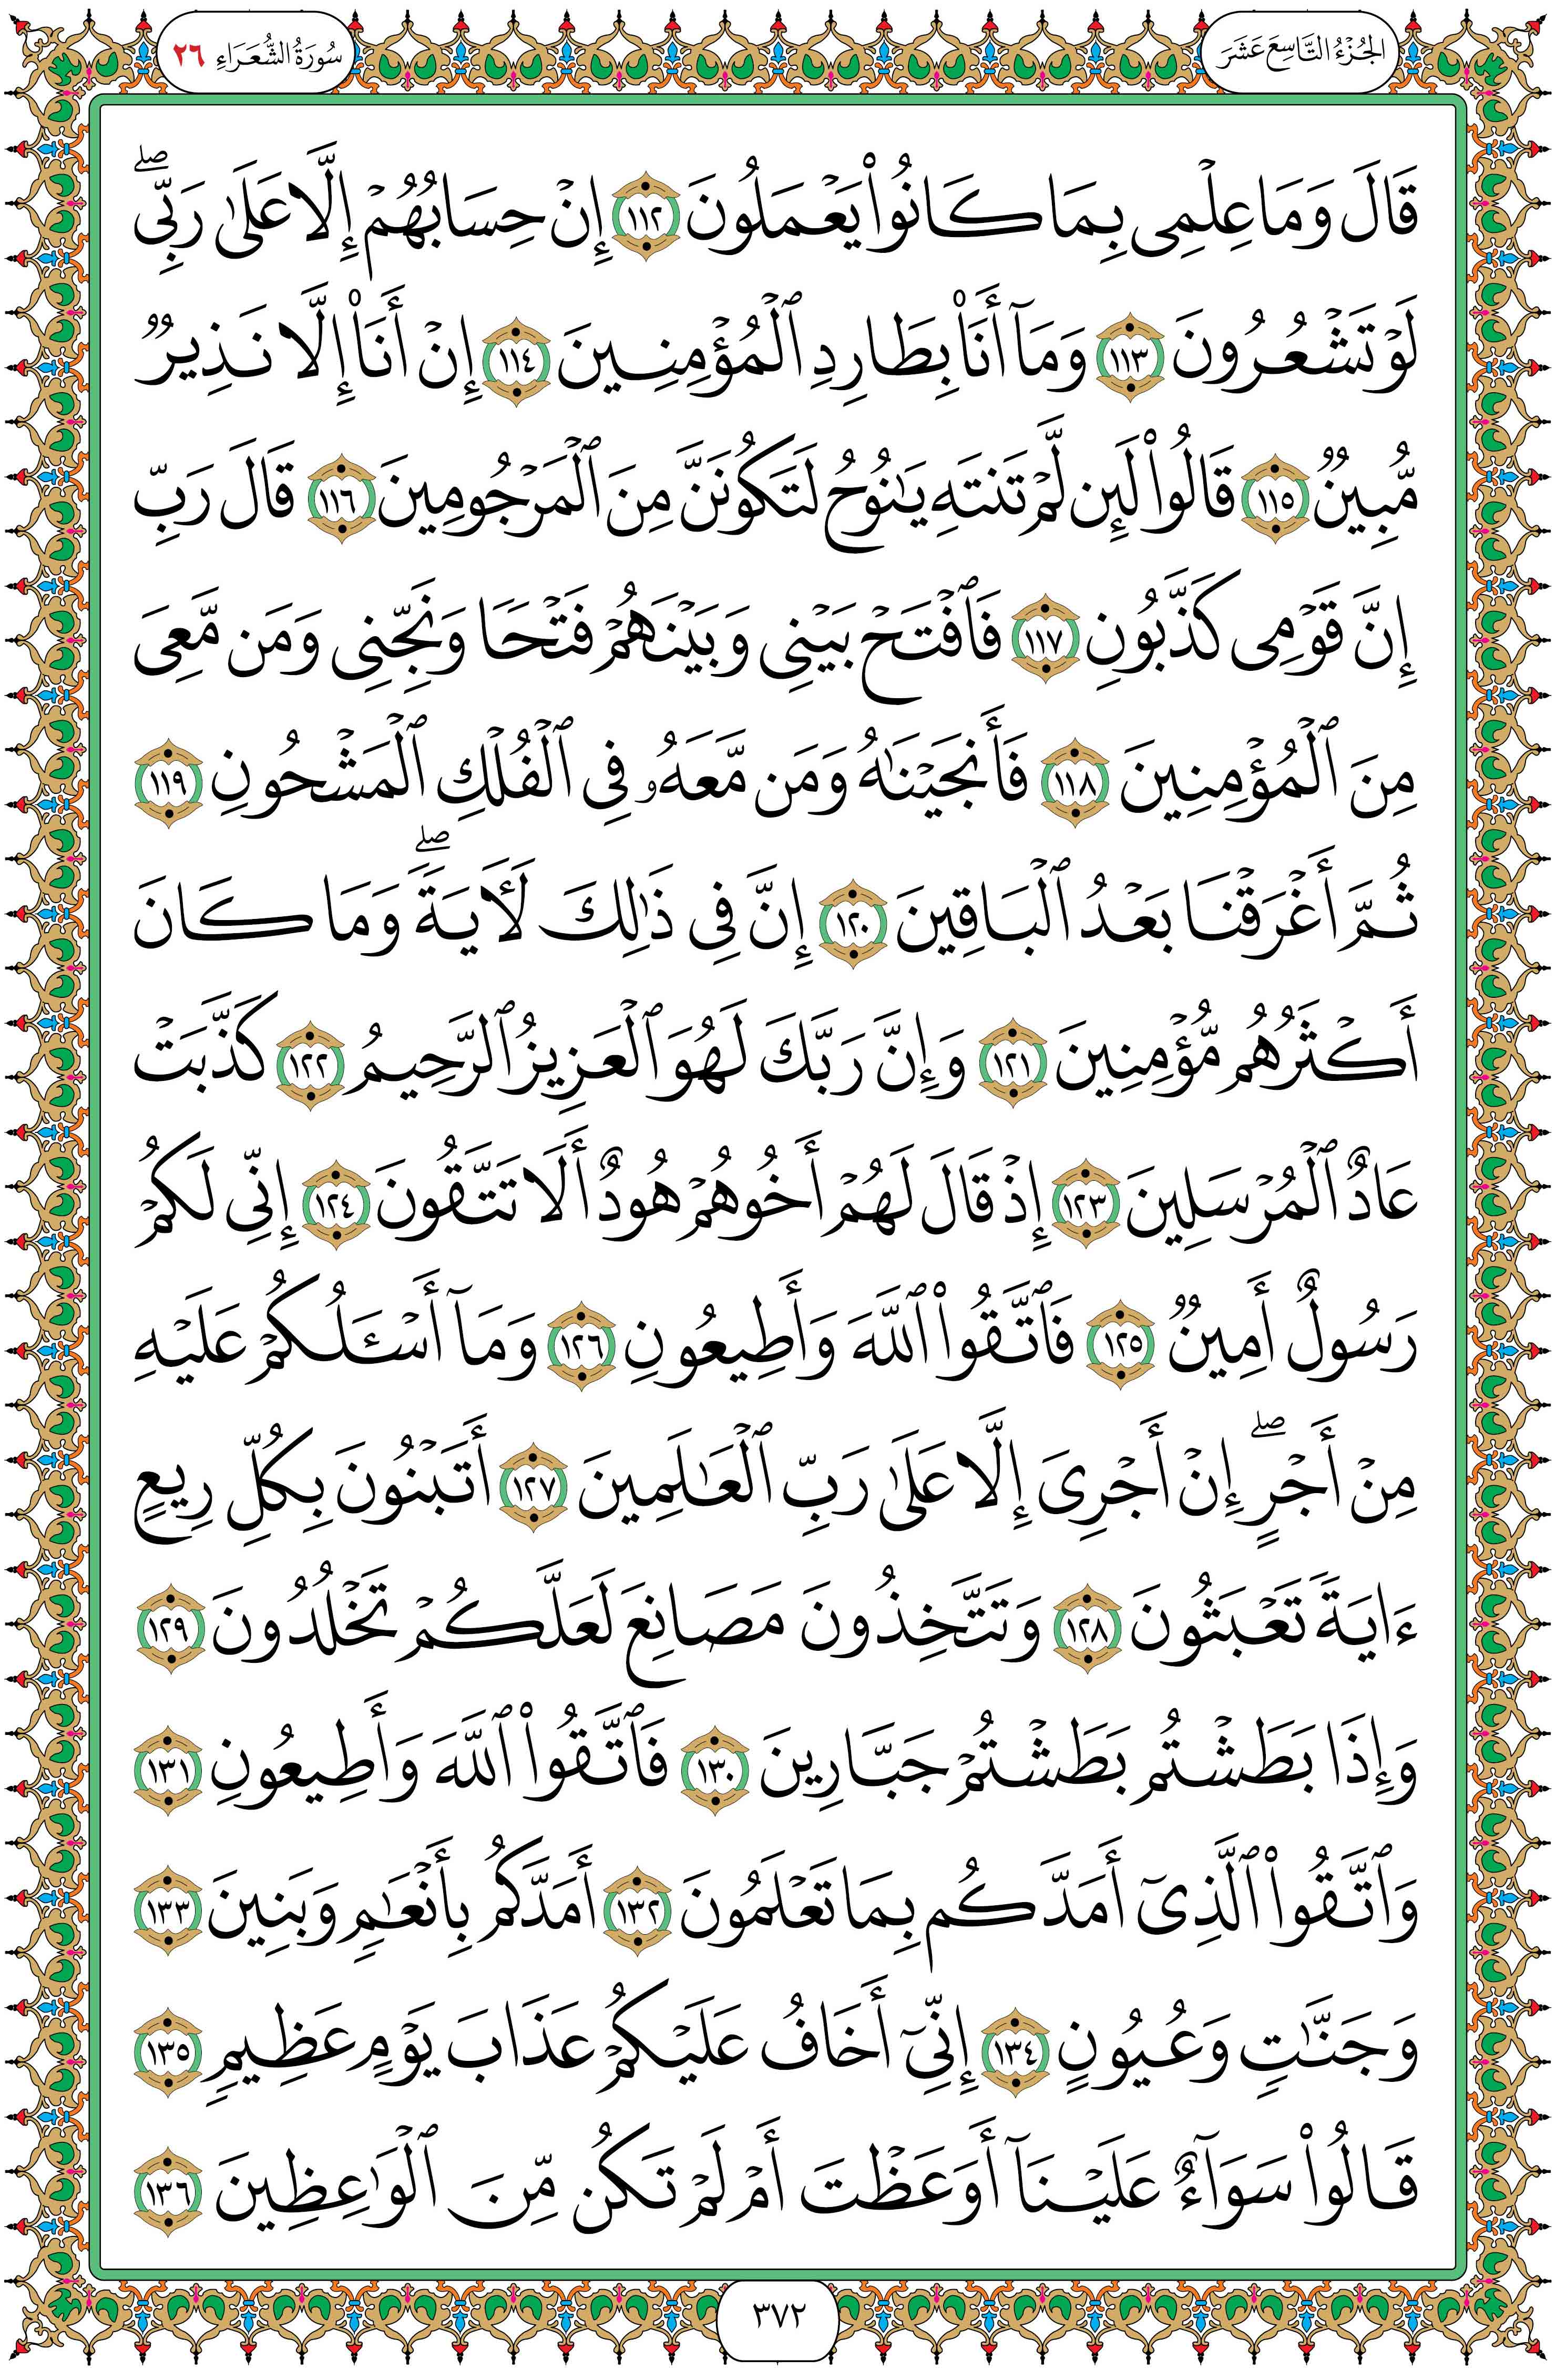 الجُزْءُ التَّاسِعَ عَشَرَ
سُورَةُ الشُّعَرَاءِ ٢٦
قَالَ وَمَا عِلْمِى بِمَا كَانُوا۟ يَعْمَلُونَ ١١٢ إِنْ حِسَابُهُمْ إِلَّا عَلَىٰ رَبِّى ۖ
لَوْ تَشْعُرُونَ ١١٣ وَمَآ أَنَا۠ بِطَارِدِ ٱلْمُؤْمِنِينَ ١١٤ إِنْ أَنَا۠ إِلَّا نَذِيرٌ
مُّبِينٌ ١١٥ قَالُوا۟ لَئِن لَّمْ تَنتَهِ يَٰنُوحُ لَتَكُونَنَّ مِنَ ٱلْمَرْجُومِينَ ١١٦ قَالَ رَبِّ
إِنَّ قَوْمِى كَذَّبُونِ ١١٧ فَٱفْتَحْ بَيْنِى وَبَيْنَهُمْ فَتْحًا وَنَجِّنِى وَمَن مَّعِىَ
مِنَ ٱلْمُؤْمِنِينَ ١١٨ فَأَنجَيْنَٰهُ وَمَن مَّعَهُۥ فِى ٱلْفُلْكِ ٱلْمَشْحُونِ ١١٩
ثُمَّ أَغْرَقْنَا بَعْدُ ٱلْبَاقِينَ ١٢٠ إِنَّ فِى ذَٰلِكَ لَـَٔايَةً ۖ وَمَا كَانَ
أَكْثَرُهُم مُّؤْمِنِينَ ١٢١ وَإِنَّ رَبَّكَ لَهُوَ ٱلْعَزِيزُ ٱلرَّحِيمُ ١٢٢ كَذَّبَتْ
عَادٌ ٱلْمُرْسَلِينَ ١٢٣ إِذْ قَالَ لَهُمْ أَخُوهُمْ هُودٌ أَلَا تَتَّقُونَ ١٢٤ إِنِّى لَكُمْ
رَسُولٌ أَمِينٌ ١٢٥ فَٱتَّقُوا۟ ٱللَّهَ وَأَطِيعُونِ ١٢٦ وَمَآ أَسْـَٔلُكُمْ عَلَيْهِ
مِنْ أَجْرٍ ۖ إِنْ أَجْرِىَ إِلَّا عَلَىٰ رَبِّ ٱلْعَٰلَمِينَ ١٢٧ أَتَبْنُونَ بِكُلِّ رِيعٍ
ءَايَةً تَعْبَثُونَ ١٢٨ وَتَتَّخِذُونَ مَصَانِعَ لَعَلَّكُمْ تَخْلُدُونَ ١٢٩
وَإِذَا بَطَشْتُم بَطَشْتُمْ جَبَّارِينَ ١٣٠ فَٱتَّقُوا۟ ٱللَّهَ وَأَطِيعُونِ ١٣١
وَٱتَّقُوا۟ ٱلَّذِىٓ أَمَدَّكُم بِمَا تَعْلَمُونَ ١٣٢ أَمَدَّكُم بِأَنْعَٰمٍ وَبَنِينَ ١٣٣
وَجَنَّٰتٍ وَعُيُونٍ ١٣٤ إِنِّىٓ أَخَافُ عَلَيْكُمْ عَذَابَ يَوْمٍ عَظِيمٍ ١٣٥
قَالُوا۟ سَوَآءٌ عَلَيْنَآ أَوَعَظْتَ أَمْ لَمْ تَكُن مِّنَ ٱلْوَٰعِظِينَ ١٣٦
٣٧٢